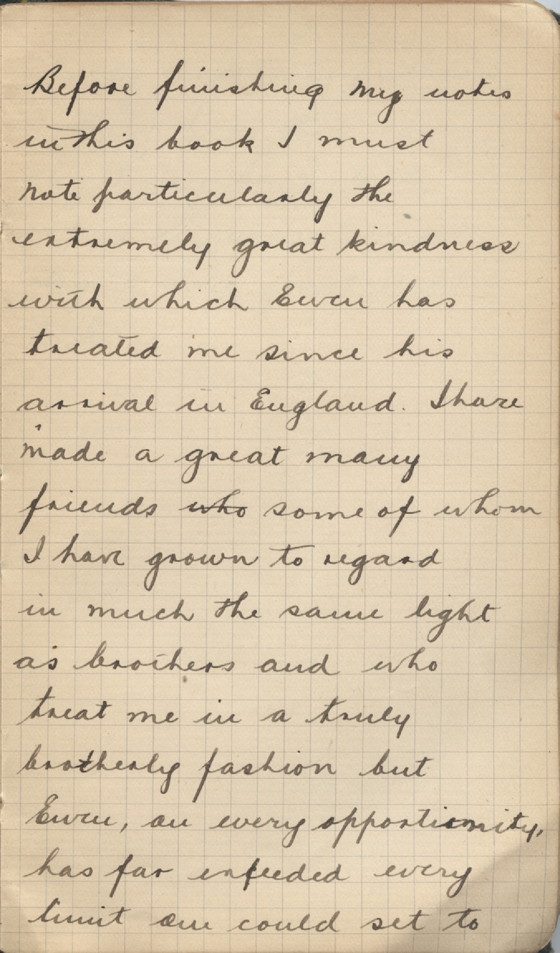 Before finishing my notes
in this book I must
note particularly the
extremely great kindness
with which Ewen has
treated me since his
arrival in England. I have
made a great many
friends who some of whom
I have grown to regard
in much the same light
as brothers and who
treat me in a truly
brotherly fashion but
Ewen, on every opportunity,
has far exceeded every
limit one could set to